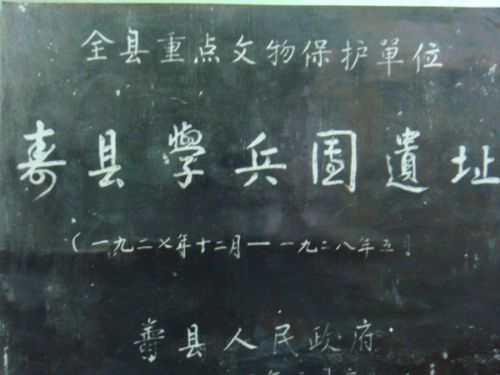 全县重点文物保护單位
寿县學兵團遺址
(一九二七年十二月—一九二八年五月
壽县人民政府